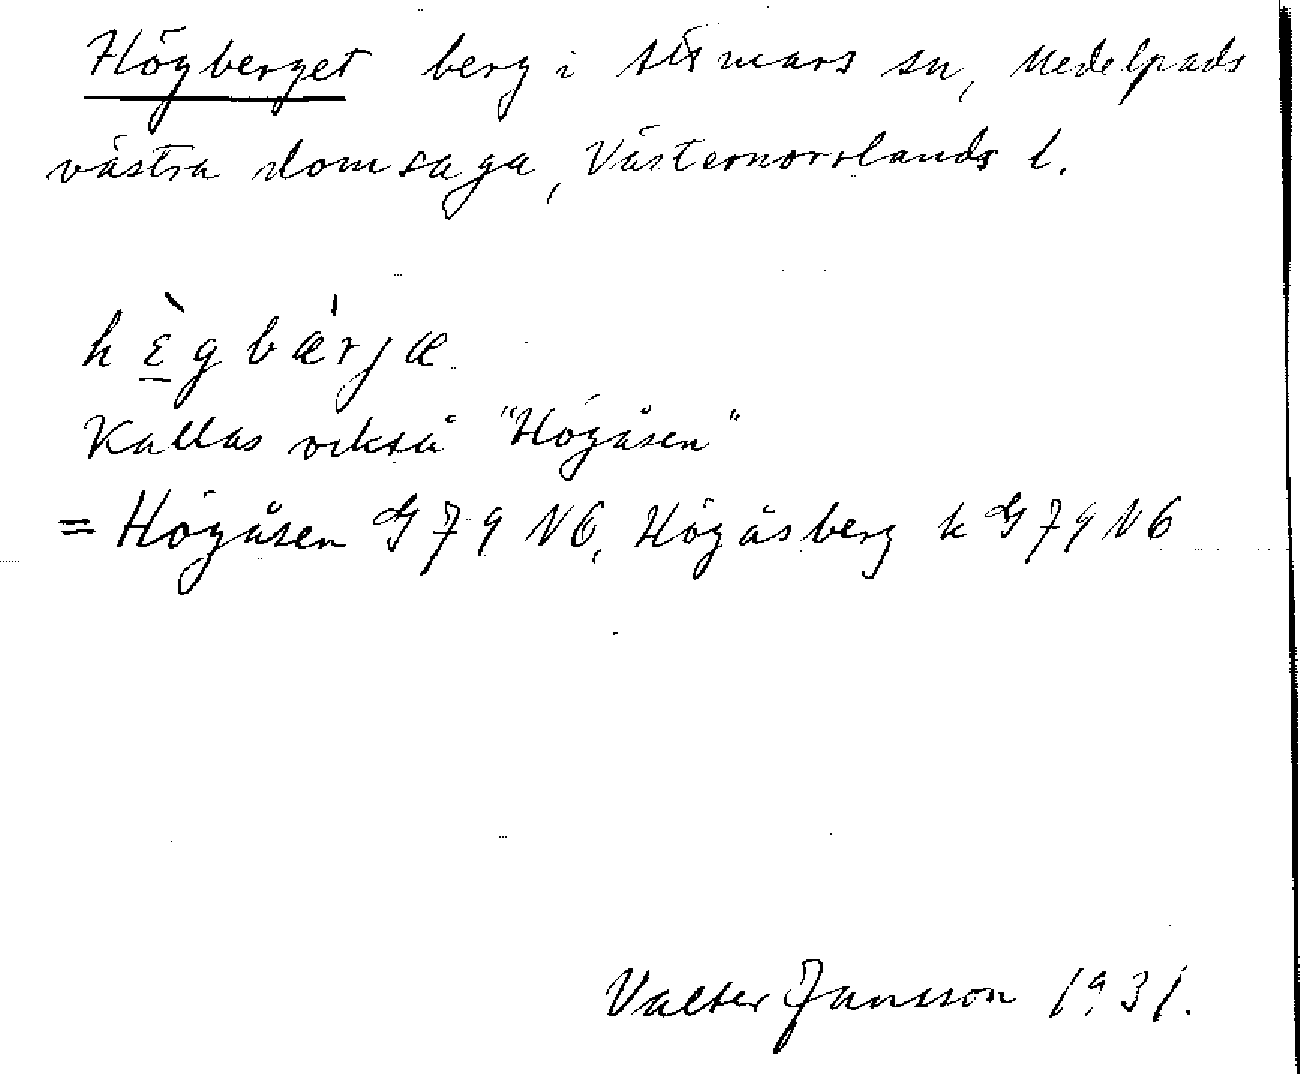 Högberget berg i Attmars sn, Medelpads
västra domsaga, Västernorrlands l.
hὲ̱gbæ̍rjæ
Kallas också "Högåsen"
= Högåsen G 79 NÖ, Högåsberg k G 79 NÖ
Valter Jansson 1931.